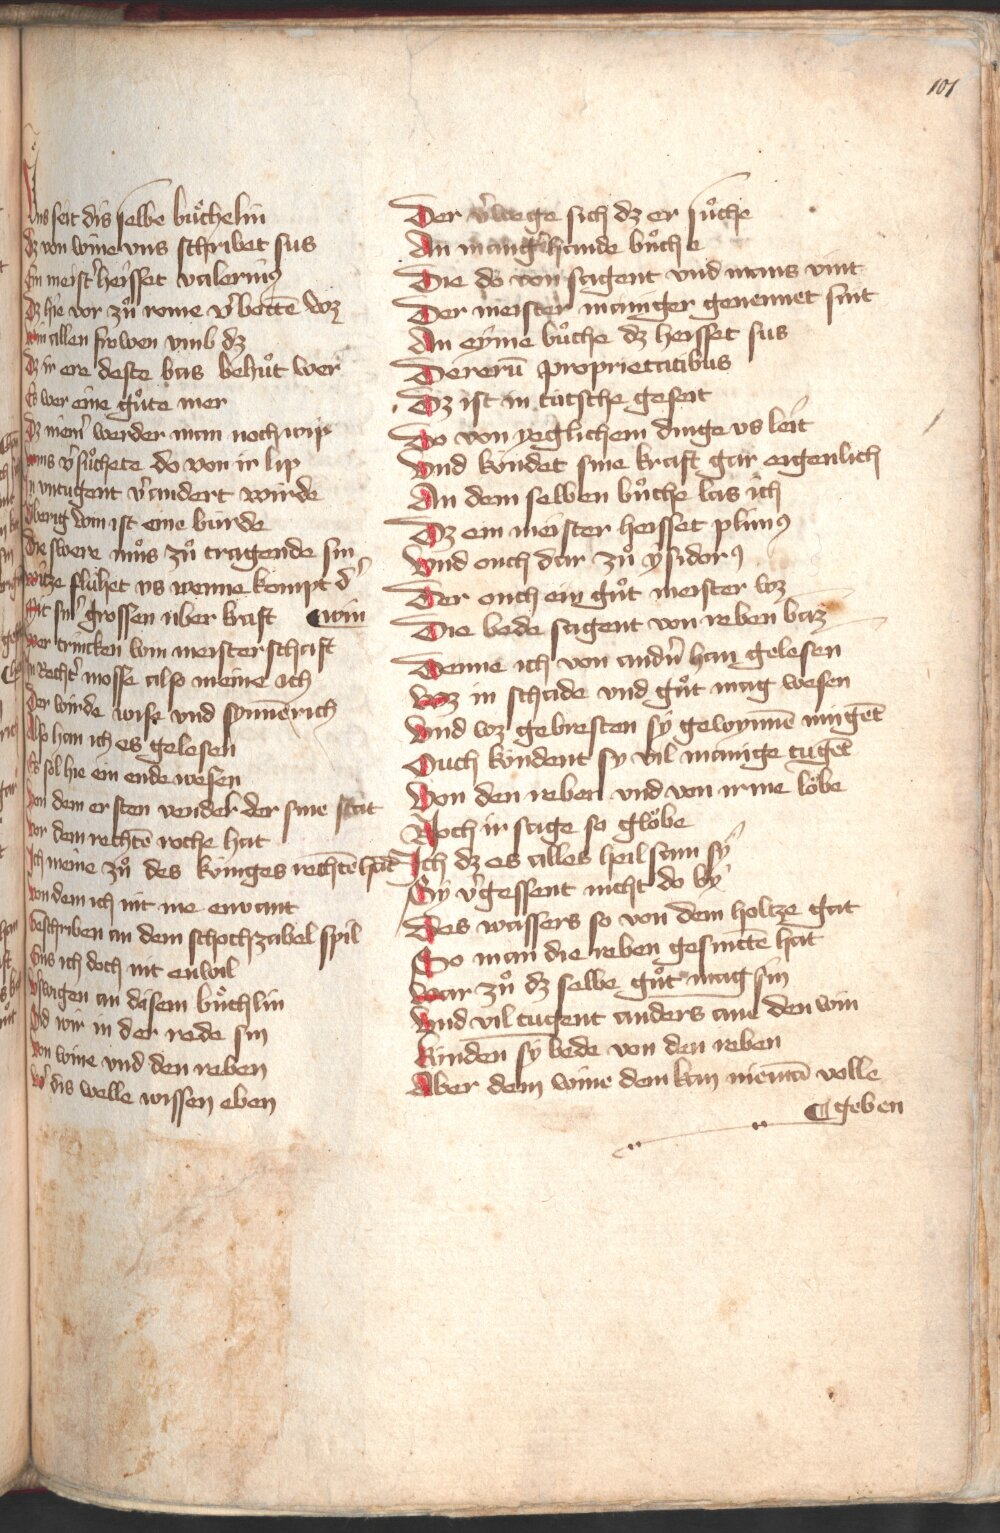 101
Uns seit dis selbe bůchelin
Dz von wine vns schribet sus
Ein meistˀ heisset valeriuꝰ
Dz hie vor zů rome vˀbottē wz
Win allen frowen vmb dz
Dz ir ere deste bas behůt wer
Es wer eine gůte mer
Dz niemˀ werder man noch wip
Wins vˀsůchete do von ir lip
In vntugent vˀandert würde
Vberig win ist eine burde
Die swere můs zů tragende sin
Witze fluhet vs wenne kompt dˀ
Mit sinˀ grossen uber kraft ¶ win
Wer trincken kan meisterschaft
In Rechtˀ mosse also meine ich
Der wirde wise vnd synnērich
Also han ich es gelesen
Es sol hie ein ende wesen
Von dem ersten venden der sine stat
Vor dem rechtē roche hat
Ich meine zů des kúniges rechtē hāt
Von dem ich nit me envant
Beschriben an dem schochzabel spil
Uns ich doch nit enwil
Vˀswigen an disem bůchlin
Sid wir in der rede sin
Von wine vnd den reben
Wˀ dis welle wissen eben
Der vˀwege sich dz er sůche
An mangˀhande bůche
Die do von sagent vnd wins vint
Der meister maniger genennet sint
An eyme bůche dz heisset sus
Dererū proprietatibus
Dz ist in tútsche geseit
Do von yeglichem dinge vs leit
Vnd kúndet sine kraft gar eigenlich
An dem selben bůche las ich
Dz ein meister heisset pliniꝰ
Vnd ouch dar zů ysidorꝰ
Der ouch ein gůt meister wz
Die bede sagent von reben baz
Denne ich von andˀn han gelesen
Waz in schade vnd gůt mag wesen
Vnd wz gebresten sy gewynnē mügēt
Ouch kúndent sy vil manige tugēt
Von den reben vnd von irme löbe
Noch ir sage so glöbe
Ich dz es alles heilsam sy
Sy vˀgessent nicht do by
Des wassers so von dem holtze gat
So man die reben gesnittē hat
War zů dz selbe gůt mag sin
Vnd vil tugent anders ane den win
Kúnden sy bede von den reben
Aber dem wine dem kan niemā volle
¶ geben